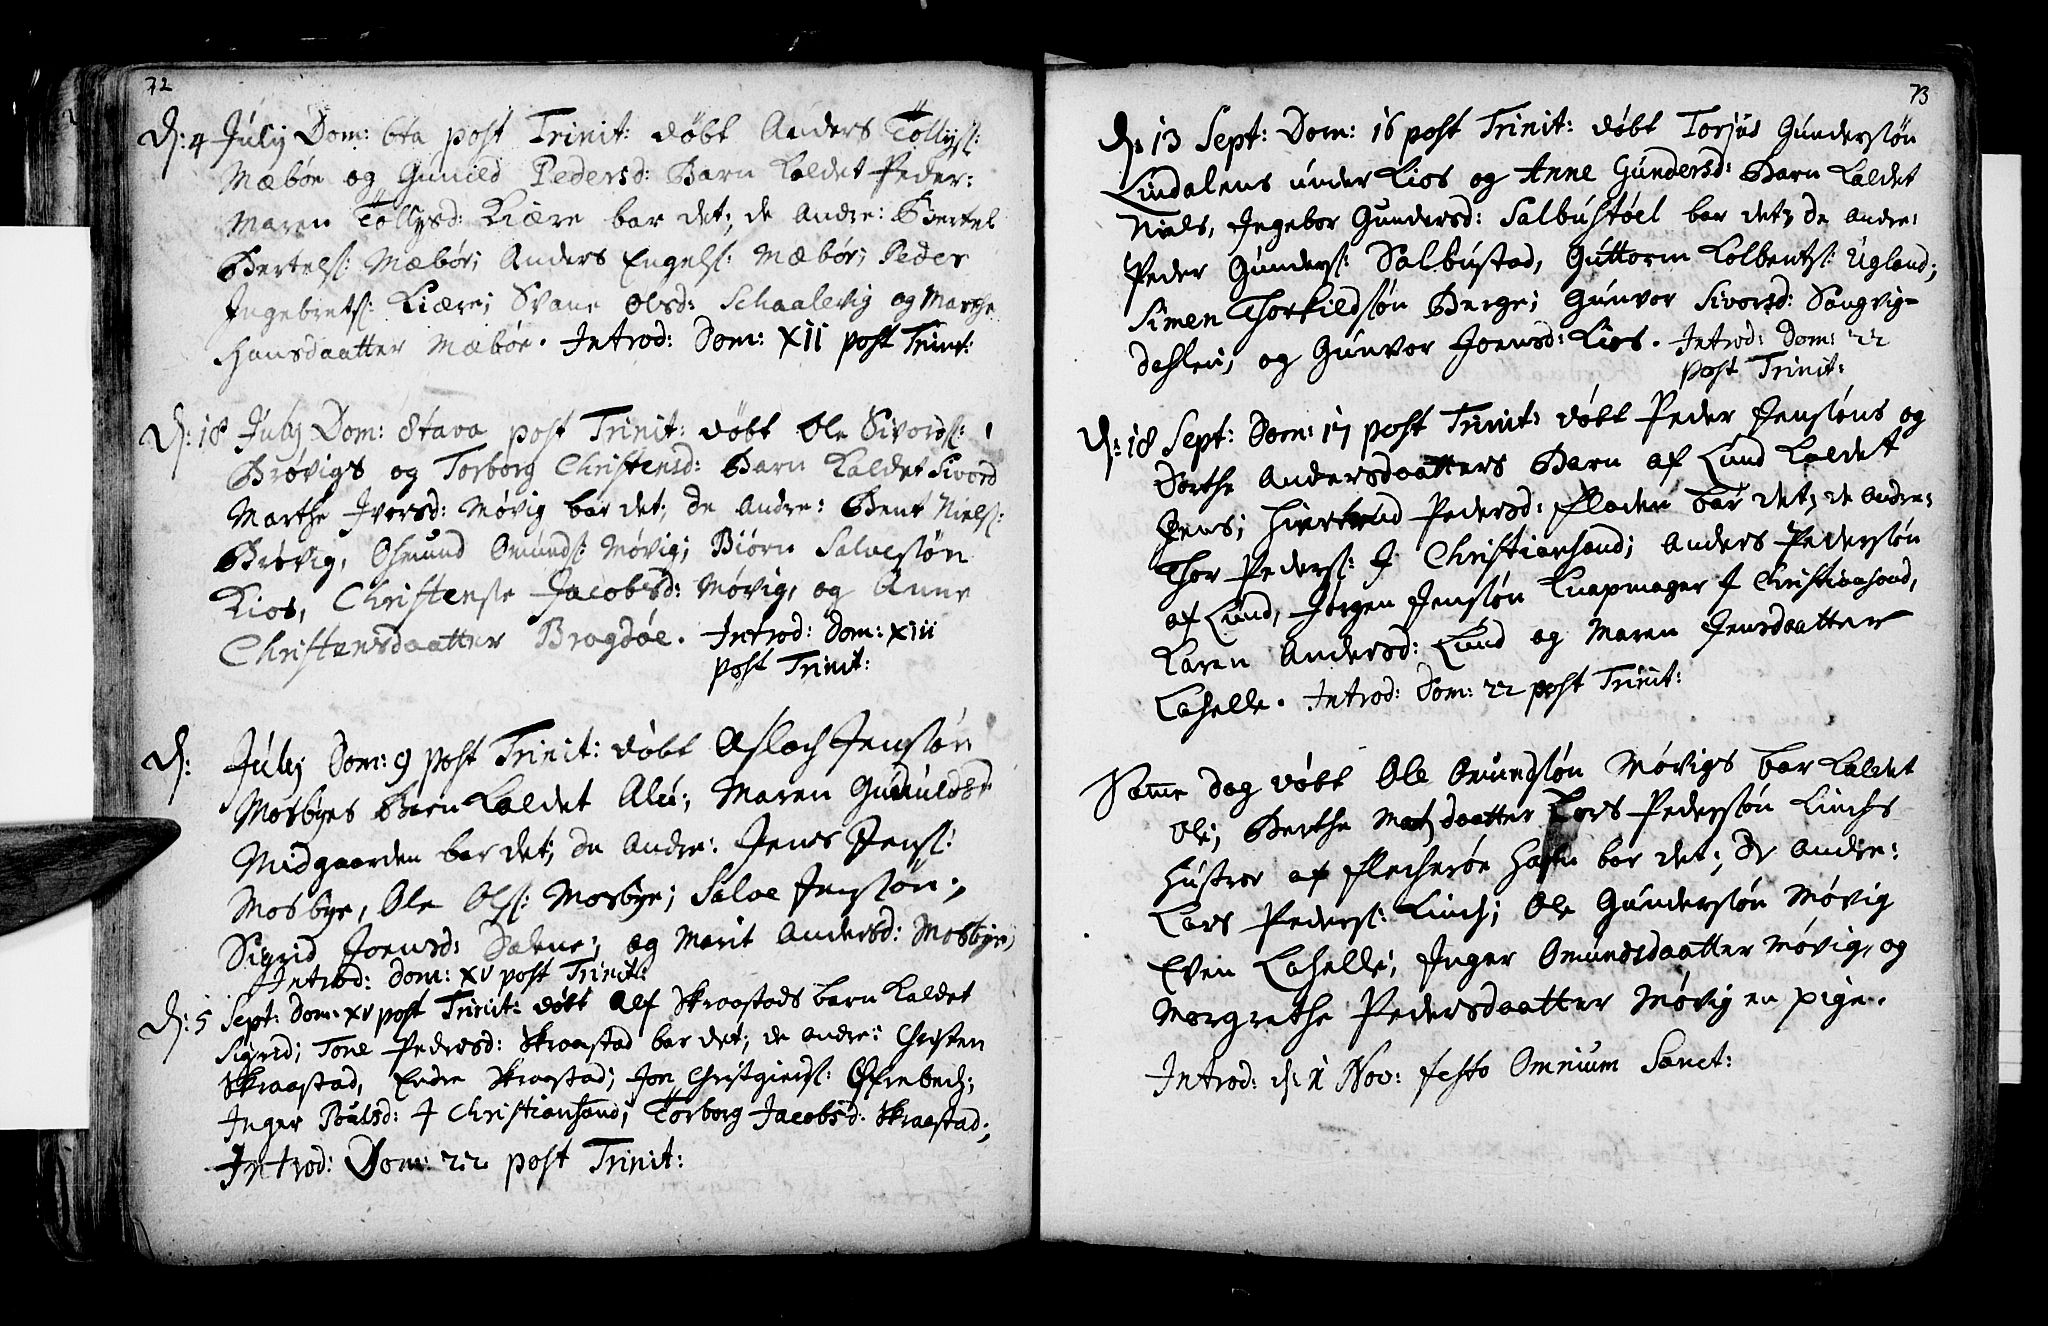 72
D: 4 July Dom: 6ta post Trinit: døbt Anders Tøllys:
Mæbøe og Gunild Pedersd: Barn kaldet Peder:
Maren Tøllysd: Kiære bar det; de andre: Bertel
Bertels: Mæbøe; Anders Engels: Mæbøe; Peder
Ingebrets: Kiære; Svane Olsd: Schaalevig og Marthe
Hansdaatter Mæbøe. Introd: Dom: XII post Trinit:
D: 18 July Dom: 8tava post Trinit: døbt Ole Sivords:
Brøvigs og Torborg Christensd: Barn kaldet Sivord
Marthe Iversd: Møvig bar det; de andre: Bent Niels:
Brøvig, Osmund Omunds: Møvig; Biørn Salvesøn
Kios, Christense Jacobsd: Møvig, og Anne
Christensdaatter Bragdøe. Introd: Dom: XIII
post Trinit:
D: July Dom: 9 post Trinit: døbt Aslach Jensøn
Mosbyes Barn kaldet Ale; Maren
Midgaarden bar det; de andre: Jens Jens:
Mosbye, Ole Ols: Mosbye; Salve Jensøn;
Sigrid Joensd: Dalene; og Marit Andersd: Mosbye;
Introd: Dom: XV post Trinit:
D: 5 Sept: Dom: XV post Trinit: døbt Alf Skraastads barn kaldet
Sigrid; Tone Pedersd: Skraastad bar det; de andre: Christen
Skraastad, Endre Skraastad; Jon
Inger Poulsd: I Christiansand; Torborg Jacobsd: Skraastad;
Introd: Dom: 22 post Trinit:
73
D: 13 Sept: Dom: 16 post Trinit: døbt Torjus Gundersøn
Lindalens under Kios og Anne Gundersd: Barn kaldet
Niels, Ingebor Gundersd: Salbustøel bar det; de andre:
Peder Gunders: Salbustad, Guttorm Kolbents: Ugland;
Simen Thorkildsøn Berge; Gunvor Sivorsd: Sangvig-
dahlen; og Gunvor Joensd: Kios. Introd: Dom: 22
post Trinit:
D: 18 Sept: Dom: 17 post Trinit: døbt Peder Jensøns og
Dorthe Andersdaatters Barn af Lund kaldet
Jens; Pedersd: Floden bar det; de andre:
Thor Peders: I Christiansand; Anders Pedersøn
af Lund, Jørgen Jensøn Knapmager I Christiansand,
Karen Andersd: Lund og Maren Jensdaatter
Lahelle. Introd: Dom: 22 post Trinit:
Samme dag døbt Ole Omundsøn Møvigs bar kaldet
Ole; Berthe Madsdaatter Lars Pedersøn Linchs
Hustroe af Flecherøe Hafn bar det; de andre:
Lars Peders: Linch; Ole Gundersøn Møvig
Even Lahelle; Inger Omundsdaatter Møvig, og
Margrethe Pedersdaatter Møvig en pige.
Introd: d: 1 Nov: festo Omnium Sanct: